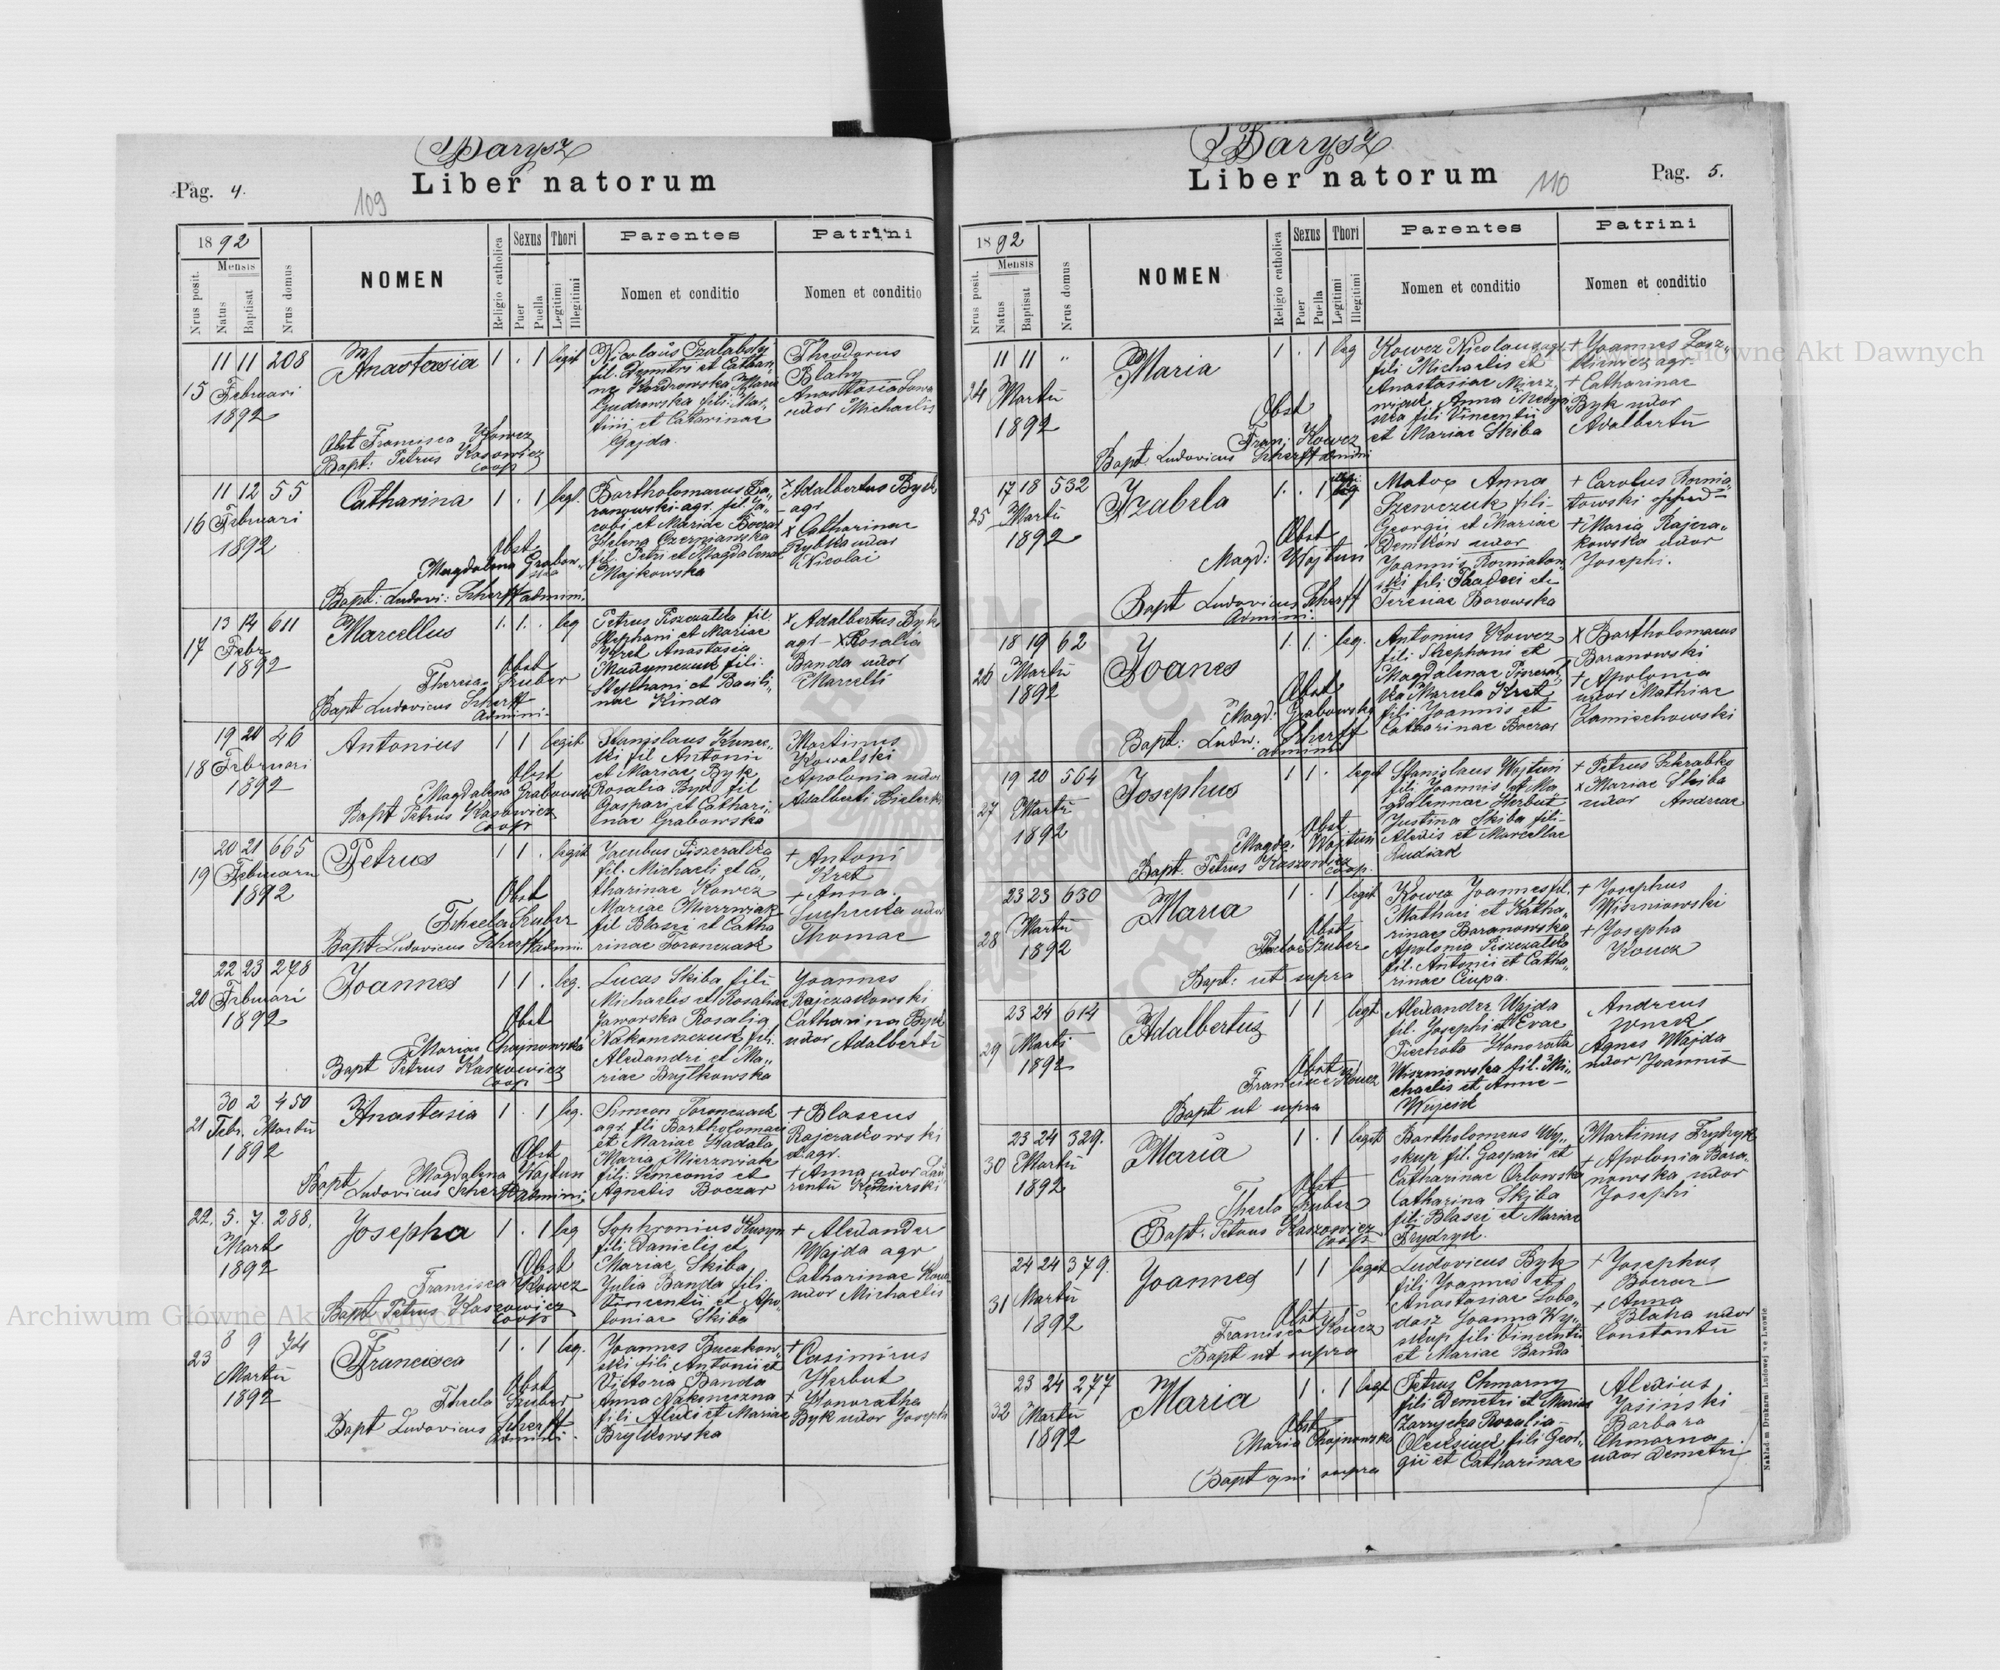 Barysz
Pag. 4.
Liber natorum
109
1892
Mensis
Nrus posit.
Natus
Baptisat
Nrus domus
NOMEN
Religio catholica
Sexus
Puer
Puella
Thori
Legitimi
Illegitimi
Parentes
Nomen et conditio
Patrini
Nomen et conditio
15
11 11 208
Februari
1892
Anastasia
1 . 1 legit
Obst Francisca Kowcz
Bapt: Petrus Kaszowicz
coop
fil. Dymitri et Cathari
tini et Catarinae
Gejda.
Theodorus
Blahy
Anastasia
uxor Michaelis
16
11 12 55
Februari
1892
Catharina
1 . 1 legt.
Obst
Magdalena Grabow
ska
Bapt: Ludovi: Scherff admini.
Bartholomaeus Ba„
ranowski agr. fil Ja„
cobi et Mariae Boczar
Helena Czerniawska
fil. Petri et Magdalenae
Majkowska
x Adalbertus Byk
agr
x Catharinae
Rybka uxor
Nicolai
17
13 14 611
Febr
1892
Marcellus
1. 1. . leg
Obst
Theresa Szuber
Bapt Ludovicus Scherff
Admini.
Petrus Piszczatka fil.
Stephani et Mariae
Kret Anastasia
fili.
Stephani et Basili„
nae Kinda
x Adalbertus Byk
agr — x Rosalia
Banda uxor
Marcelli
18
19 20 46
Februari
1892
Antonius
1 1 legit
Obst
Magdalena Grabowska
Bapt Petrus Kaszowicz
coop
Stanislaus
ki fil Antonii
et Mariae Byk
Rosalia Byk fil
Gaspari et Cathari„
nae Grabowska
Martinus
Kowalski
Apolonia uxor
Adalberti Bielecki
19
20 21 665
Februari
1892
Petrus
1 1 . legit
Obst
Thecla Szuber
Bapt Ludovicus Scherff admin
Jacobus Piszczatka
fil. Michaeli et Ca„
tharinae Kowcz
Mariae Mierzwiak
fil Blasii et Catha
rinae Toronczak
+ Antoni
Kret
+ Anna
uxor
Thomae
20
22 23 278
Februari
1892
Joannes
1 1 . leg.
Obst
Mariae Chojnowska
Bapt Petrus Kaszowicz
coop
Lucas Skiba fili
Michaelis et Rosaliae
Jaworska Rosalia
Nakoneczeczuk fil.
Alexandri et Ma„
riae Brylkowska
Joannes
Rajczakowski
Catharina Byk
uxor Adalberti
21
30 2 450
Febr. Martii
1892
Anastasia
1 . 1 leg.
Obst
Magdalena Wojtun
Bapt Ludovicus Scherff admini
Simeon Toronczak
agr. fili Bartholomaei
et Mariae Zadata
Maria Mierzwiak
fili. Simeonis et
Agnetis Boczar
+ Blaseus
Rajczakowski
agr.
+ Anna uxor Lau„
rentii
22.
5. 7. 288.
Mart
1892
Josepha
1 . 1 leg
Obst
Francisca Kowcz
Bapt Petrus Kaszowicz
coop
Sophronius
fili Danielis et
Mariae Skiba
Julia Banda fili
Vincentii et Apo„
loniae Skiba
+ Alexander
Wajda agr
Catharinae
uxor Michaelis
23
8 9 74
Martii
1892
Francisca
1 . 1 leg.
Obst
Thecla Szuber
Bapt Ludovicus Scherff
Admini.
Joannes Buczkow„
ski fili Antonii et
Victoria Banda
Anna Nakoneczna
fili Alexi et Mariae
Brylkowska
+ Casimirus
Herbut
x Honoratha
Byk uxor Josephi
Barysz
Liber natorum
110
Pag. 5.
1892
Mensis
Nrus posit.
Natus
Baptisat
Nrus domus
NOMEN
Religio catholica
Sexus
Puer
Puella
Thori
Legitimi
Illegitimi
Parentes
Nomen et conditio
Patrini
Nomen et conditio
24
11 11 „
Martii
1892
Maria
1 . 1 leg
Obst
Fran: Kowcz
Bapt Ludovicus Scherff admini
Kowcz Nicolaus agr
fili Michaelis et
Anastasiae Mierz„
wiak, Anna
fili Vincentii
et Mariae Skiba
+ Joannes
agr.
+ Catharinae
Byk uxor
Adalberti
25
17 18 532
Martii
1892
Izabela
1. . 1
Obst
Magd: Wojtun
Bapt Ludovicus Scherff
Admini.
Anna
Szewczuk fili
Georgii et Mariae
Demków uxor
Joannis Rozniatow„
ski fili Thadei et
Teresiae Borowska
+ Carolus Roznia„
towski
+ Maria Rajcza„
kowska uxor
Josephi.
26
18 19 62
Martii
1892
Joanes
1. 1. . leg.
Obst
Magd: Grabowska
Bapt: Ludw: Scherff
admini
Antonius Kowcz
fili Stephani et
Magdalenae Piszczat
ka Marcela Kret
fili Joannis et
Catharinae Boczar
x Bartholomaeus
Baranowski
+ Apolonia
uxor Mathiae
Zamiechowski
27
19 20 564
Martii
1892
Josephus
1 1 . legit
Obst
Magda: Wojtun
Bapt. Petrus Kaszowicz
coop.
Stanislaus Wojtun
fili Joannis et Ma„
gdalennae Herbut
Justina Skiba fili
Alexis et Marcellae
Ludiak
+ Petrus Skrabka
x Mariae Skiba
uxor Andreae
28
23 23 630
Martii
1892
Maria
1 . 1 legit
Obst
Szuber
Bapt: ut supra
Kowcz Joannes fil.
Mathaei et Katha„
rinae Baranowska
Apolonia Piszczatka
fil. Antonii et Catha„
rinae Ciupa.
+ Josephus
Wiszniowski
+ Josepha
Koucz
29
23 24 614
Marti
1892
Adalbertus
1 1 legt
Obst
Francisca Koucz
Bapt ut supra
Alexander Wajda
fil. Josephi et Evae
Piechota Honorata
Wiszniowska fil. Mi„
chaelis et Annae
Wujcik
Andreus
Agnes Wajda
uxor Joannis
30
23 24 329.
Martii
1892
Maria
1 . 1 legit
Obst
Thecla Szuber
Bapt. Petrus Kaszowicz
coop.
Bartholomeus Wy„
skup fil. Gaspari et
Catharinae Orlowska
Catharina Skiba
fili Blasei et Mariae
Frydryk.
Martinus Frydryk
+ Apolonia Bara„
nowska uxor
Josephi
31
24 24 379.
Martii
1892
Joannes
1 1 legit
Obst
Francisca Koucz
Bapt ut supra
Ludovicus Byk
fili Joannis et
Anastasiae Loba„
dasz Joanna Wy„
skup fili Vincenti
et Mariae Banda
+ Josephus
Boczar
+ Anna
Blaha uxor
Constantii
32
23 24 277
Martii
1892
Maria
1 . 1 legt
Obst
Maria Chojnowska
Bapt qui supra
Petrus Chmarny
fili Demetri et Mariae
Zarzycka Rozalia
Oleksiuk fili Geor„
gii et Catharinae
Alexius
Jasinski
Barbara
Chmarna
uxor Demetri
Nakładem Drukarni Ludowej we Lwowie
Archiwum Główne Akt Dawnych
Archiwum Główne Akt Dawnych